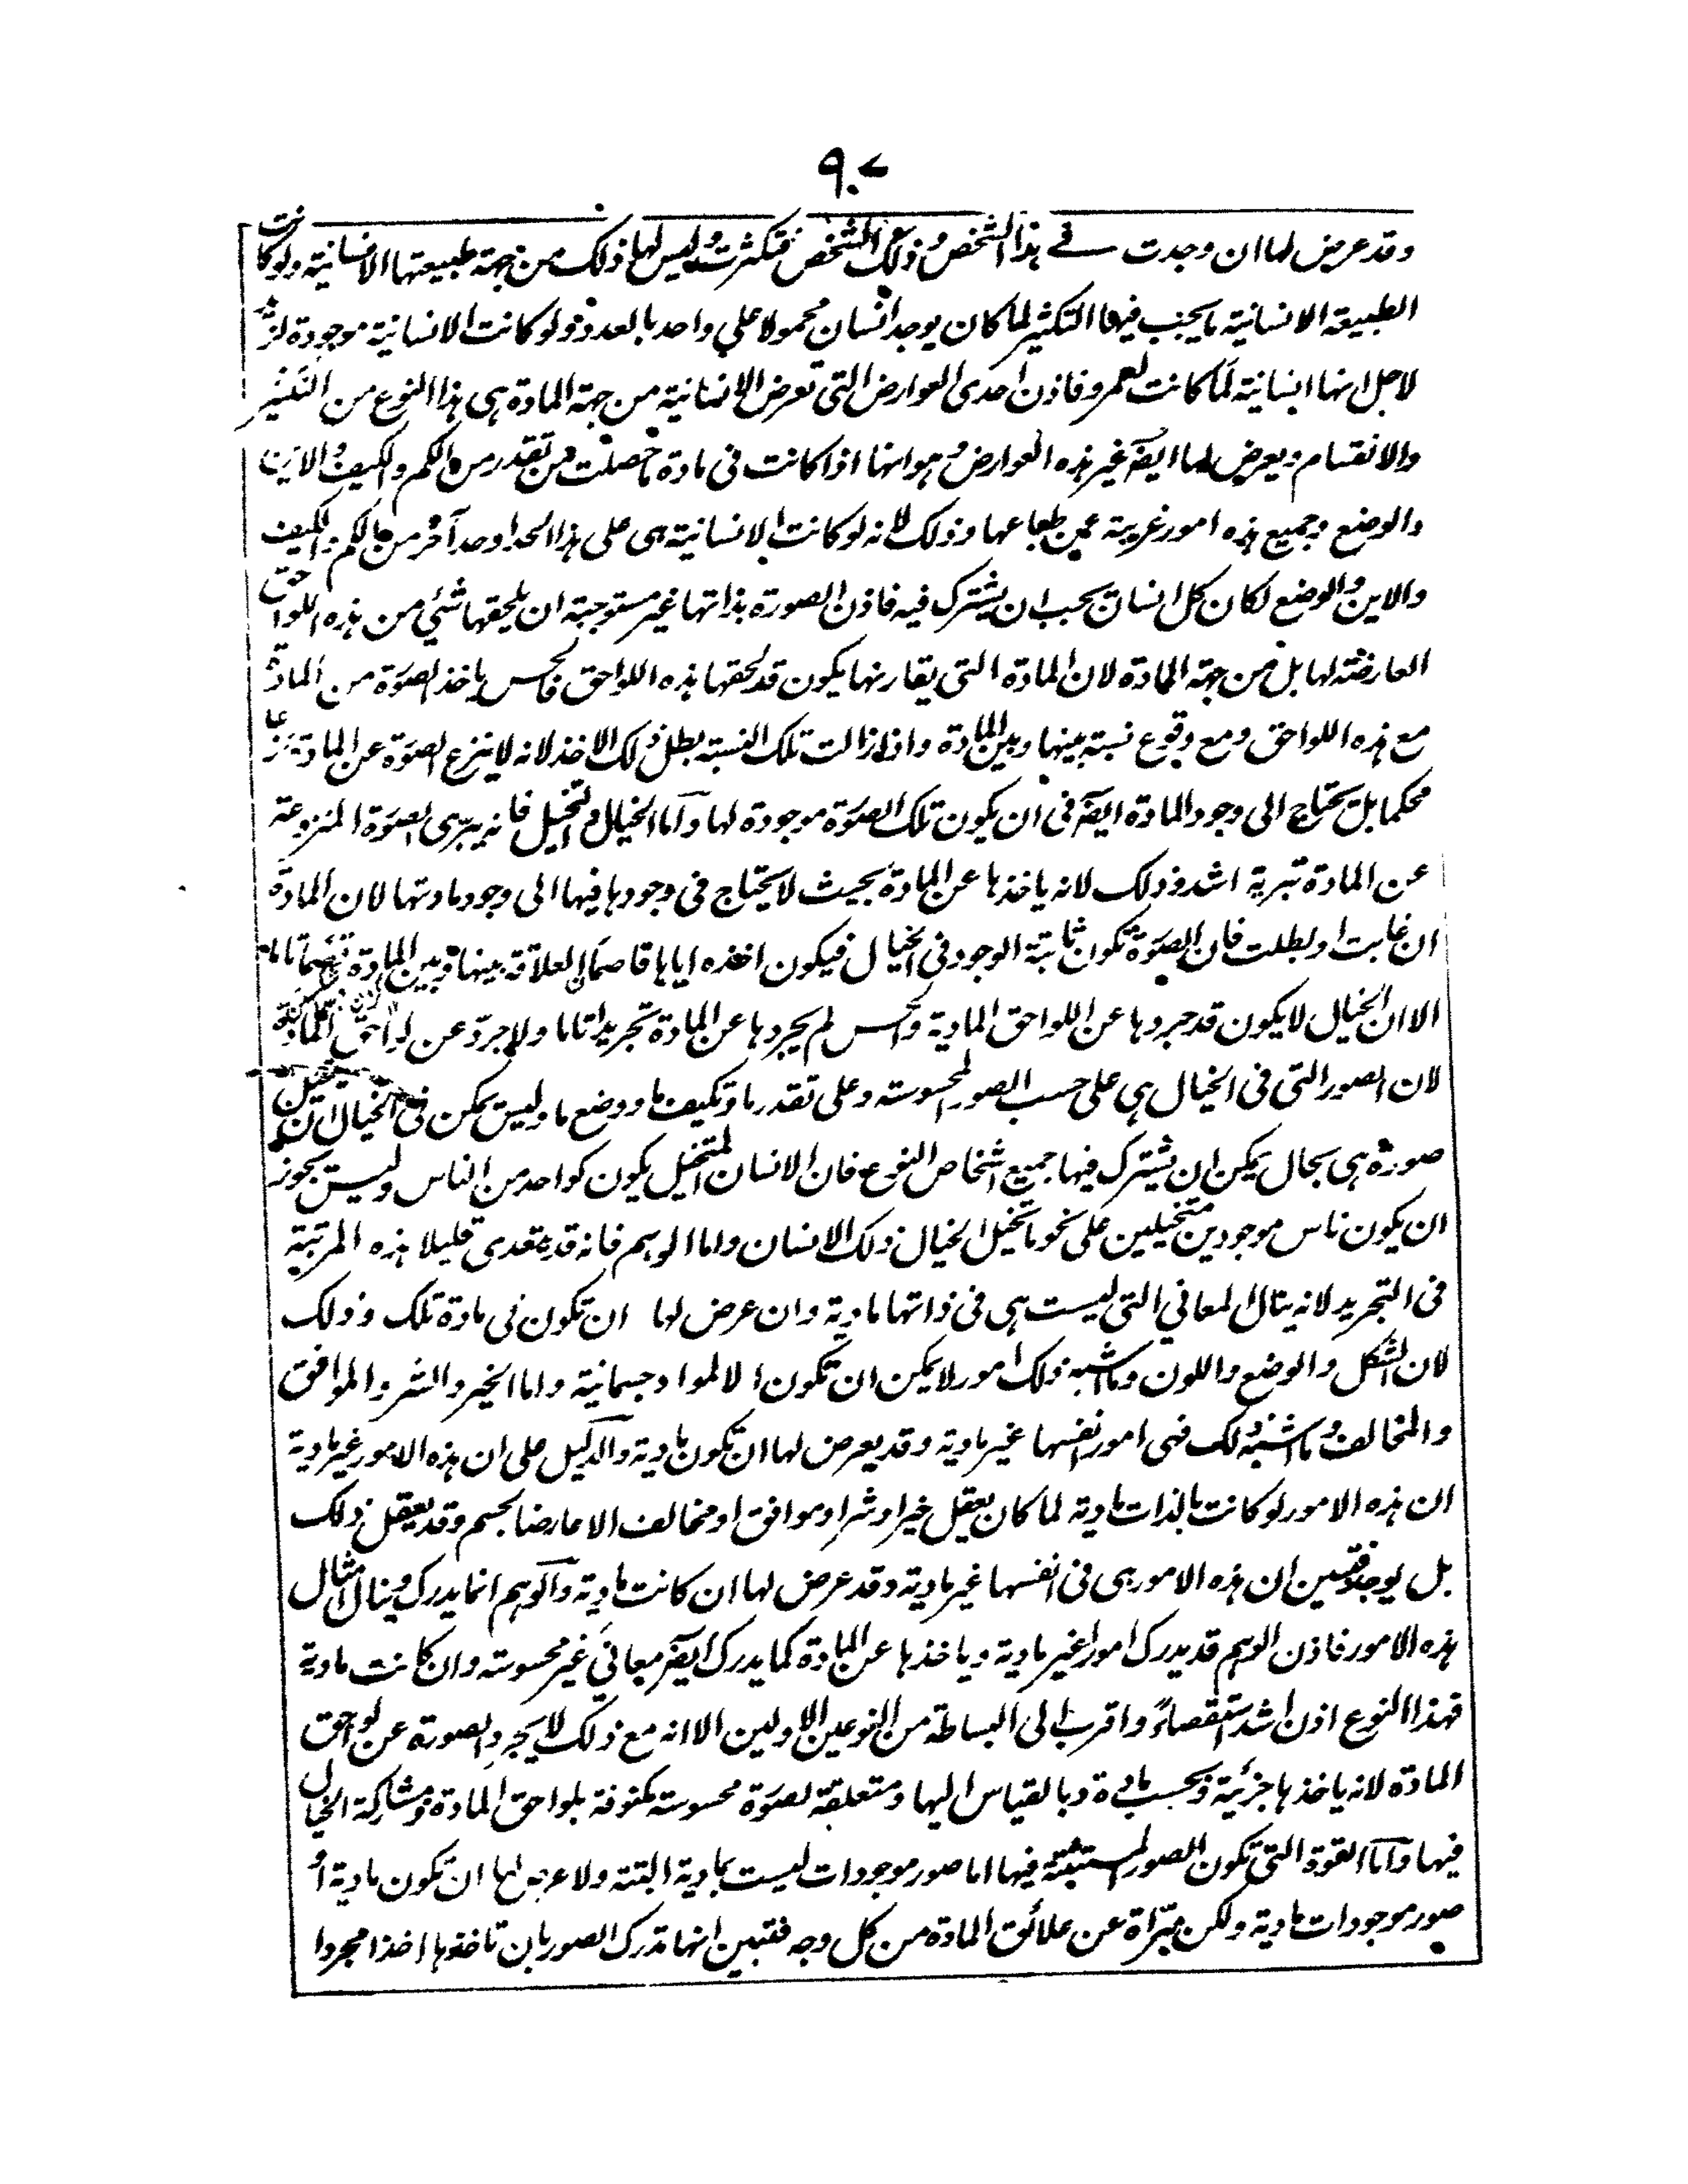 ٩٠٧
وقد عرض لها ان وجدت في هذا الشخص وذلك الشخص فتكثرت وليس لها ذلك من جهة طبيعتها الانسانية ولو كانت
الطبيعة الانسانية ما يجب فيها التكثير لما كان يوجد انسان محمولا علي واحد بالعدد ولو كانت الانسانية موجودة لزيد
لاجل انها انسانية لما كانت لعمرو فاذن احدى العوارض التي تعرض الانسانية من جهة المادة هي هذا النوع من التكثير
والانقسام ويعرض لها ايضا غير هذه العوارض وهو انها اذا كانت في مادة ما حصلت من تقدر من الكم والكيف والاين
والوضع وجميع هذه امور غريبة عن طباعها وذلك لانه لو كانت الانسانية هي على هذا الحد او حد آخر من الكم والكيف
والاين والوضع لكان كل انسان يجب ان يشترك فيه فاذن الصورة بذاتها غير مستوجبة ان يلحقها شئي من هذه اللواحق
العارضة لها بل من جهة المادة لان المادة التي يقارنها يكون قد لحقها هذه اللواحق فالحس ياخذ الصورة من المادة
مع هذه اللواحق ومع وقوع نسبة بينها وبين المادة واذا زالت تلك النسبة بطل ذلك الاخذ لانه لا ينزع الصورة عن المادة نزعا
محكما بل يحتاج الى وجود المادة ايضا في ان يكون تلك الصورة موجودة لها واما الخيال والتخيل فانه يبرى الصورة المنزوعة
عن المادة تبرية اشد وذلك لانه ياخذها عن المادة بحيث لا يحتاج في وجودها فيها الى وجود مادتها لان المادة
ان غابت او بطلت فان الصورة تكون ثابتة الوجود في الخيال فيكون اخذه اياها قاصما العلاقة بينها وبين المادة قصما تاما
الا ان الخيال لا يكون قد جردها عن اللواحق المادية والحس لم يجردها عن المادة تجريدا تاما ولا جرد عن لواحق المادة
لان الصور التي في الخيال هي على حسب الصور المحسوسة وعلى تقدر ما وتكيف ما ووضع ما وليس يمكن في الخيال ان تتخيل
صورة هي بحال يمكن ان يشترك فيها جميع اشخاص النوع فان الانسان المتخيل يكون كواحد من الناس وليس يجوز
ان يكون ناس موجودين متخيلين على نحو ما تخيل الخيال ذلك الانسان واما الوهم فانه قد يتعدى قليلا هذه المرتبة
في التجريد لانه ينال المعاني التي ليست هي في ذاتها مادية وان عرض لها ان تكون في مادة تلك وذلك
لان الشكل والوضع واللون وما اشبه ذلك امور لا يمكن ان تكون الا لمواد جسمانية واما الخير والشر والموافق
والمخالف وما اشبه ذلك فهي امور انفسها غير مادية وقد يعرض لها ان تكون مادية والدليل على ان هذه الامور غير مادية
ان هذه الامور لو كانت بالذات مادية لما كان يعقل خير او شر او موافق او مخالف الا عارضا بجسم وقد يعقل ذلك
بل يوجد فتبين ان هذه الامور هي في انفسها غير مادية وقد عرض لها ان كانت مادية والوهم انما يدرك وينال امثال
هذه الامور فاذن الوهم قد يدرك امورا غير مادية وياخذها عن المادة كما يدرك ايضا معاني غير محسوسة وان كانت مادية
فهذا النوع اذن اشد استقصاء واقرب الى البساطة من النوعين الاولين الا انه مع ذلك لا يجرد الصورة عن لواحق
المادة لانه ياخذها جزئية وبحسب مادة وبالقياس اليها ومتعلقة لصورة محسوسة مكنوفة بلواحق المادة ومشاركة الخيال
فيها واما القوة التي تكون الصور المستثبتة فيها اما صور موجودات ليست بمادية البتة ولا عرض لها ان تكون مادية او
صور موجودات مادية ولكن مبراة عن علائق المادة من كل وجه فتبين انها تدرك الصور بان تاخذها اخذا مجردا